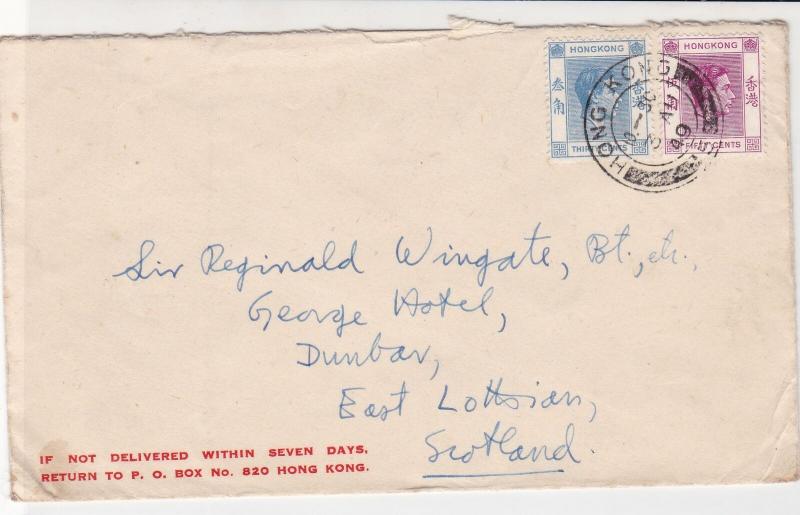 HONGKONG
HONGKONG
叁角
香港
香港
THIRTY CENTS
FIFTY CENTS
HONG KONG
49
Sir Reginald Wingate, Bt., etc.,
George Hotel,
Dunbar,
East Lothian,
Scotland.
IF NOT DELIVERED WITHIN SEVEN DAYS,
RETURN TO P. O. BOX No. 820 HONG KONG.